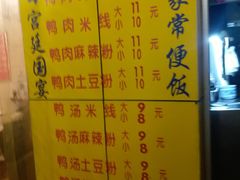 宫廷国宴
家常便饭
鸭肉米线 大11 小10 元
鸭肉麻辣粉 大11 小10 元
鸭肉土豆粉 大11 小10 元
鸭汤米线 大9 小8 元
鸭汤麻辣粉 大9 小8 元
鸭汤土豆粉 大9 小8 元